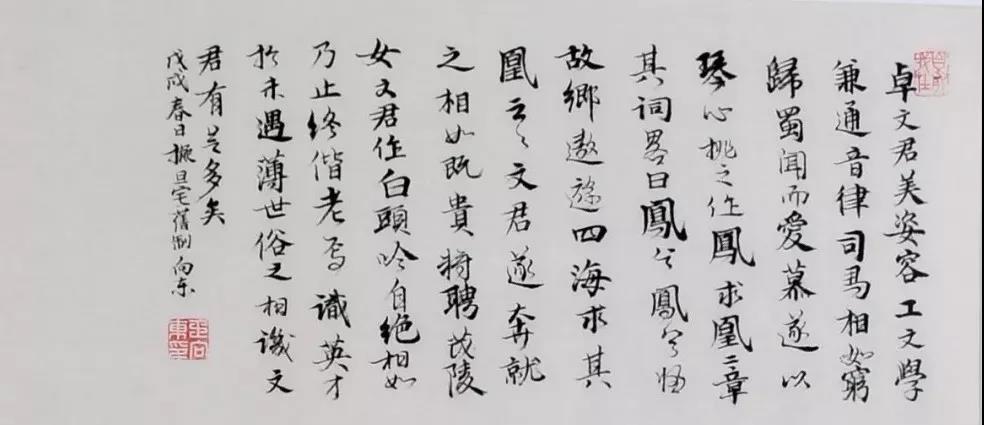 卓文君美姿容工文學
兼通音律司馬相如窮
歸蜀闻而愛慕遂以
琴心挑之作鳳求凰二章
其词畧曰鳳兮鳳兮归
故鄉遨遊四海求其
凰云云文君遂奔就
之相如既貴將聘茂陵
女文君作白頭吟自绝相如
乃止终偕老焉識英才
於未遇薄世俗之相譏文
君有是多矣
戊戌春日撫旦宅舊制向东